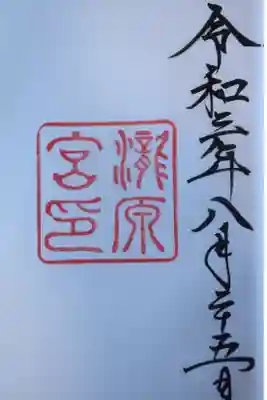 令和年八月二十五日
瀧原
宮印